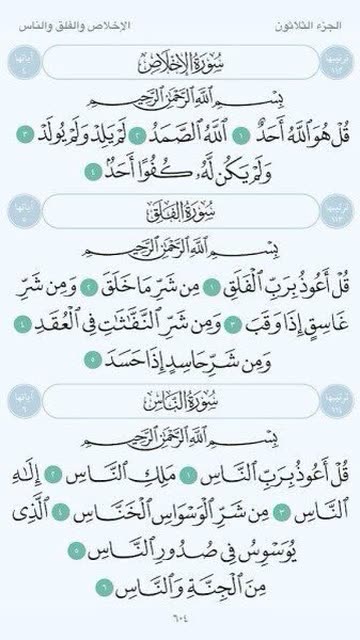 الجزء الثلاثون الإخلاص والفلق والناس
ترتيبها ١١٢ سُورَةُ الإِخْلَاصِ آياتها ٤
بِسْمِ اللَّهِ الرَّحْمَٰنِ الرَّحِيمِ
قُلْ هُوَ اللَّهُ أَحَدٌ ١ اللَّهُ الصَّمَدُ ٢ لَمْ يَلِدْ وَلَمْ يُولَدْ ٣
وَلَمْ يَكُن لَّهُۥ كُفُوًا أَحَدٌۢ ٤
ترتيبها ١١٣ سُورَةُ الفَلَقِ آياتها ٥
بِسْمِ اللَّهِ الرَّحْمَٰنِ الرَّحِيمِ
قُلْ أَعُوذُ بِرَبِّ الْفَلَقِ ١ مِن شَرِّ مَا خَلَقَ ٢ وَمِن شَرِّ
غَاسِقٍ إِذَا وَقَبَ ٣ وَمِن شَرِّ النَّفَّٰثَٰتِ فِي الْعُقَدِ ٤
وَمِن شَرِّ حَاسِدٍ إِذَا حَسَدَ ٥
ترتيبها ١١٤ سُورَةُ النَّاسِ آياتها ٦
بِسْمِ اللَّهِ الرَّحْمَٰنِ الرَّحِيمِ
قُلْ أَعُوذُ بِرَبِّ النَّاسِ ١ مَلِكِ النَّاسِ ٢ إِلَٰهِ
النَّاسِ ٣ مِن شَرِّ الْوَسْوَاسِ الْخَنَّاسِ ٤ الَّذِي
يُوَسْوِسُ فِي صُدُورِ النَّاسِ ٥
مِنَ الْجِنَّةِ وَالنَّاسِ ٦
٦٠٤